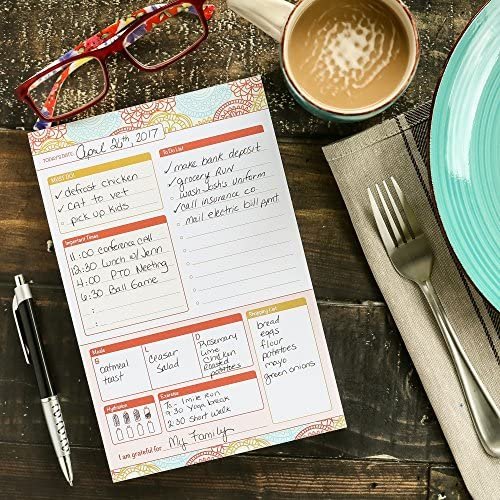 TODAY'S DATE April 26th, 2017
MUST DO!
defrost chicken
cat to vet
pick up kids
To Do List
make bank deposit
grocery run
wash Josh's uniform
call insurance co.
mail electric bill pymt.
Important Times
11:00 conference call
12:30 Lunch w/ Jenn
4:00 PTO Meeting
6:30 Ball Game
Meals
B
oatmeal
toast
L
Ceasar
Salad
D
Rosemary
Lime
Chicken
Roasted
potatoes
Shopping List
bread
eggs
flour
potatoes
mayo
green onions
Hydrate
Exercise
7a - 1 mile Run
9:30 Yoga break
2:30 Short Walk
I am grateful for My Family